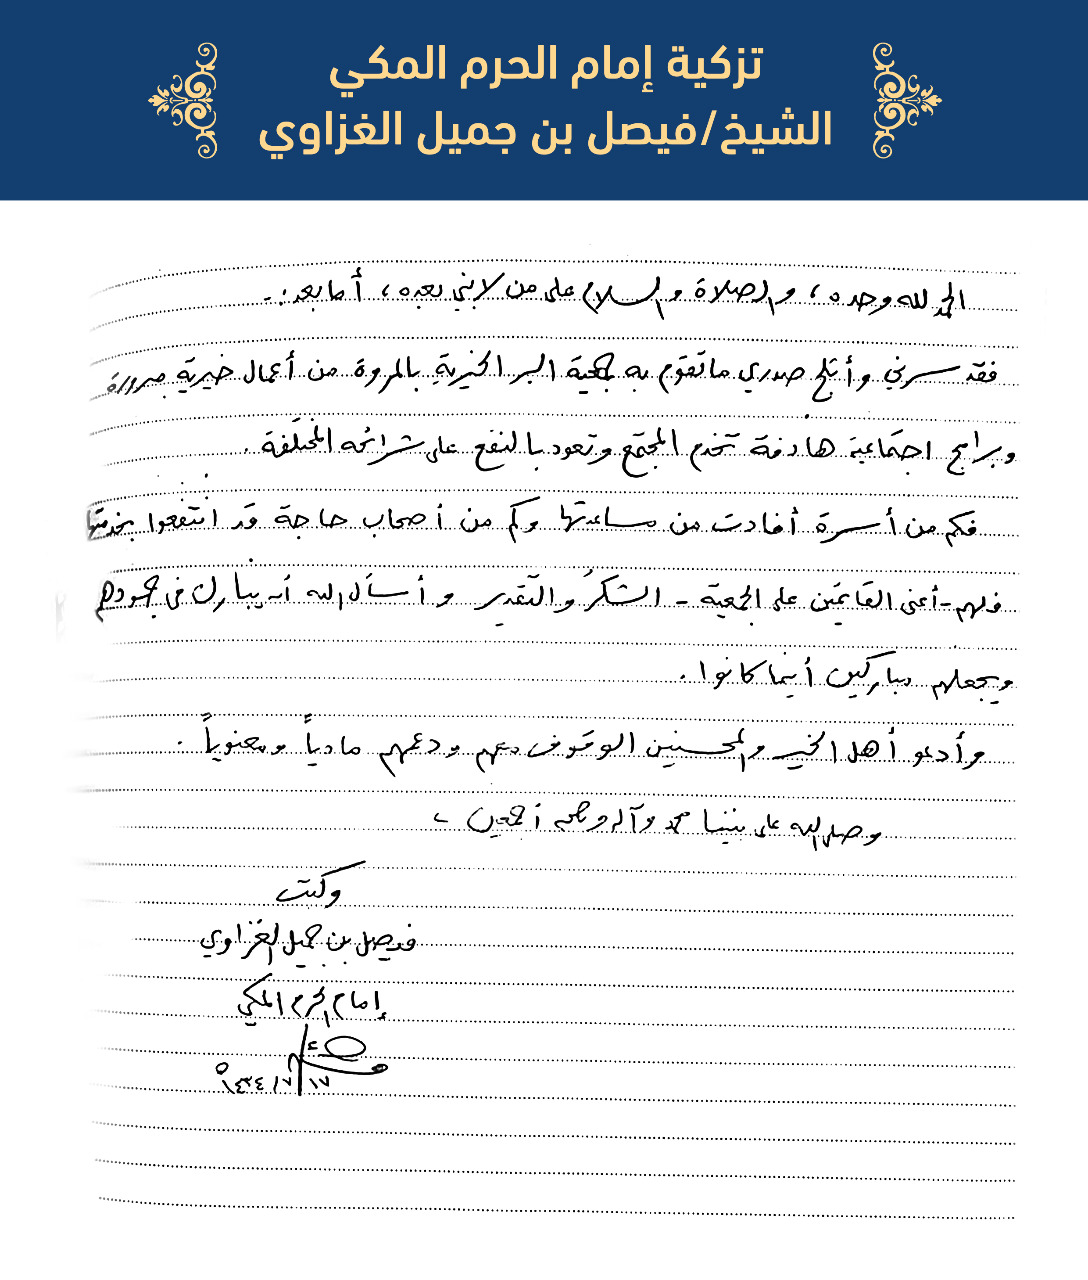 تزكية إمام الحرم المكي
الشيخ/فيصل بن جميل الغزاوي
الحمد لله وحده، والصلاة والسلام على من لا نبي بعده، أما بعد:-
فقد سرني وأثلج صدري ما تقوم به جمعية البر الخيرية بالمروة من أعمال خيرية مبرورة
وبرامج اجتماعية هادفة تخدم المجتمع وتعود بالنفع على شرائحه المختلفة.
فكم من أسرة أفادت من مساعدتها وكم من أصحاب حاجة قد انتفعوا بخدمتها
فلهم-أعني القائمين على الجمعية- الشكرُ والتقدير وأسأل الله أن يبارك في جهودهم
ويجعلهم مباركين أينما كانوا.
وأدعو أهل الخير والمحسنين الوقوف معهم ودعمهم مادياً ومعنوياً.
وصلى الله على نبينا محمد وآله وصحبه أجمعين،
وكتب
فيصل بن جميل الغزاوي
إمام الحرم المكي
١٧/٧/١٤٣٤ه